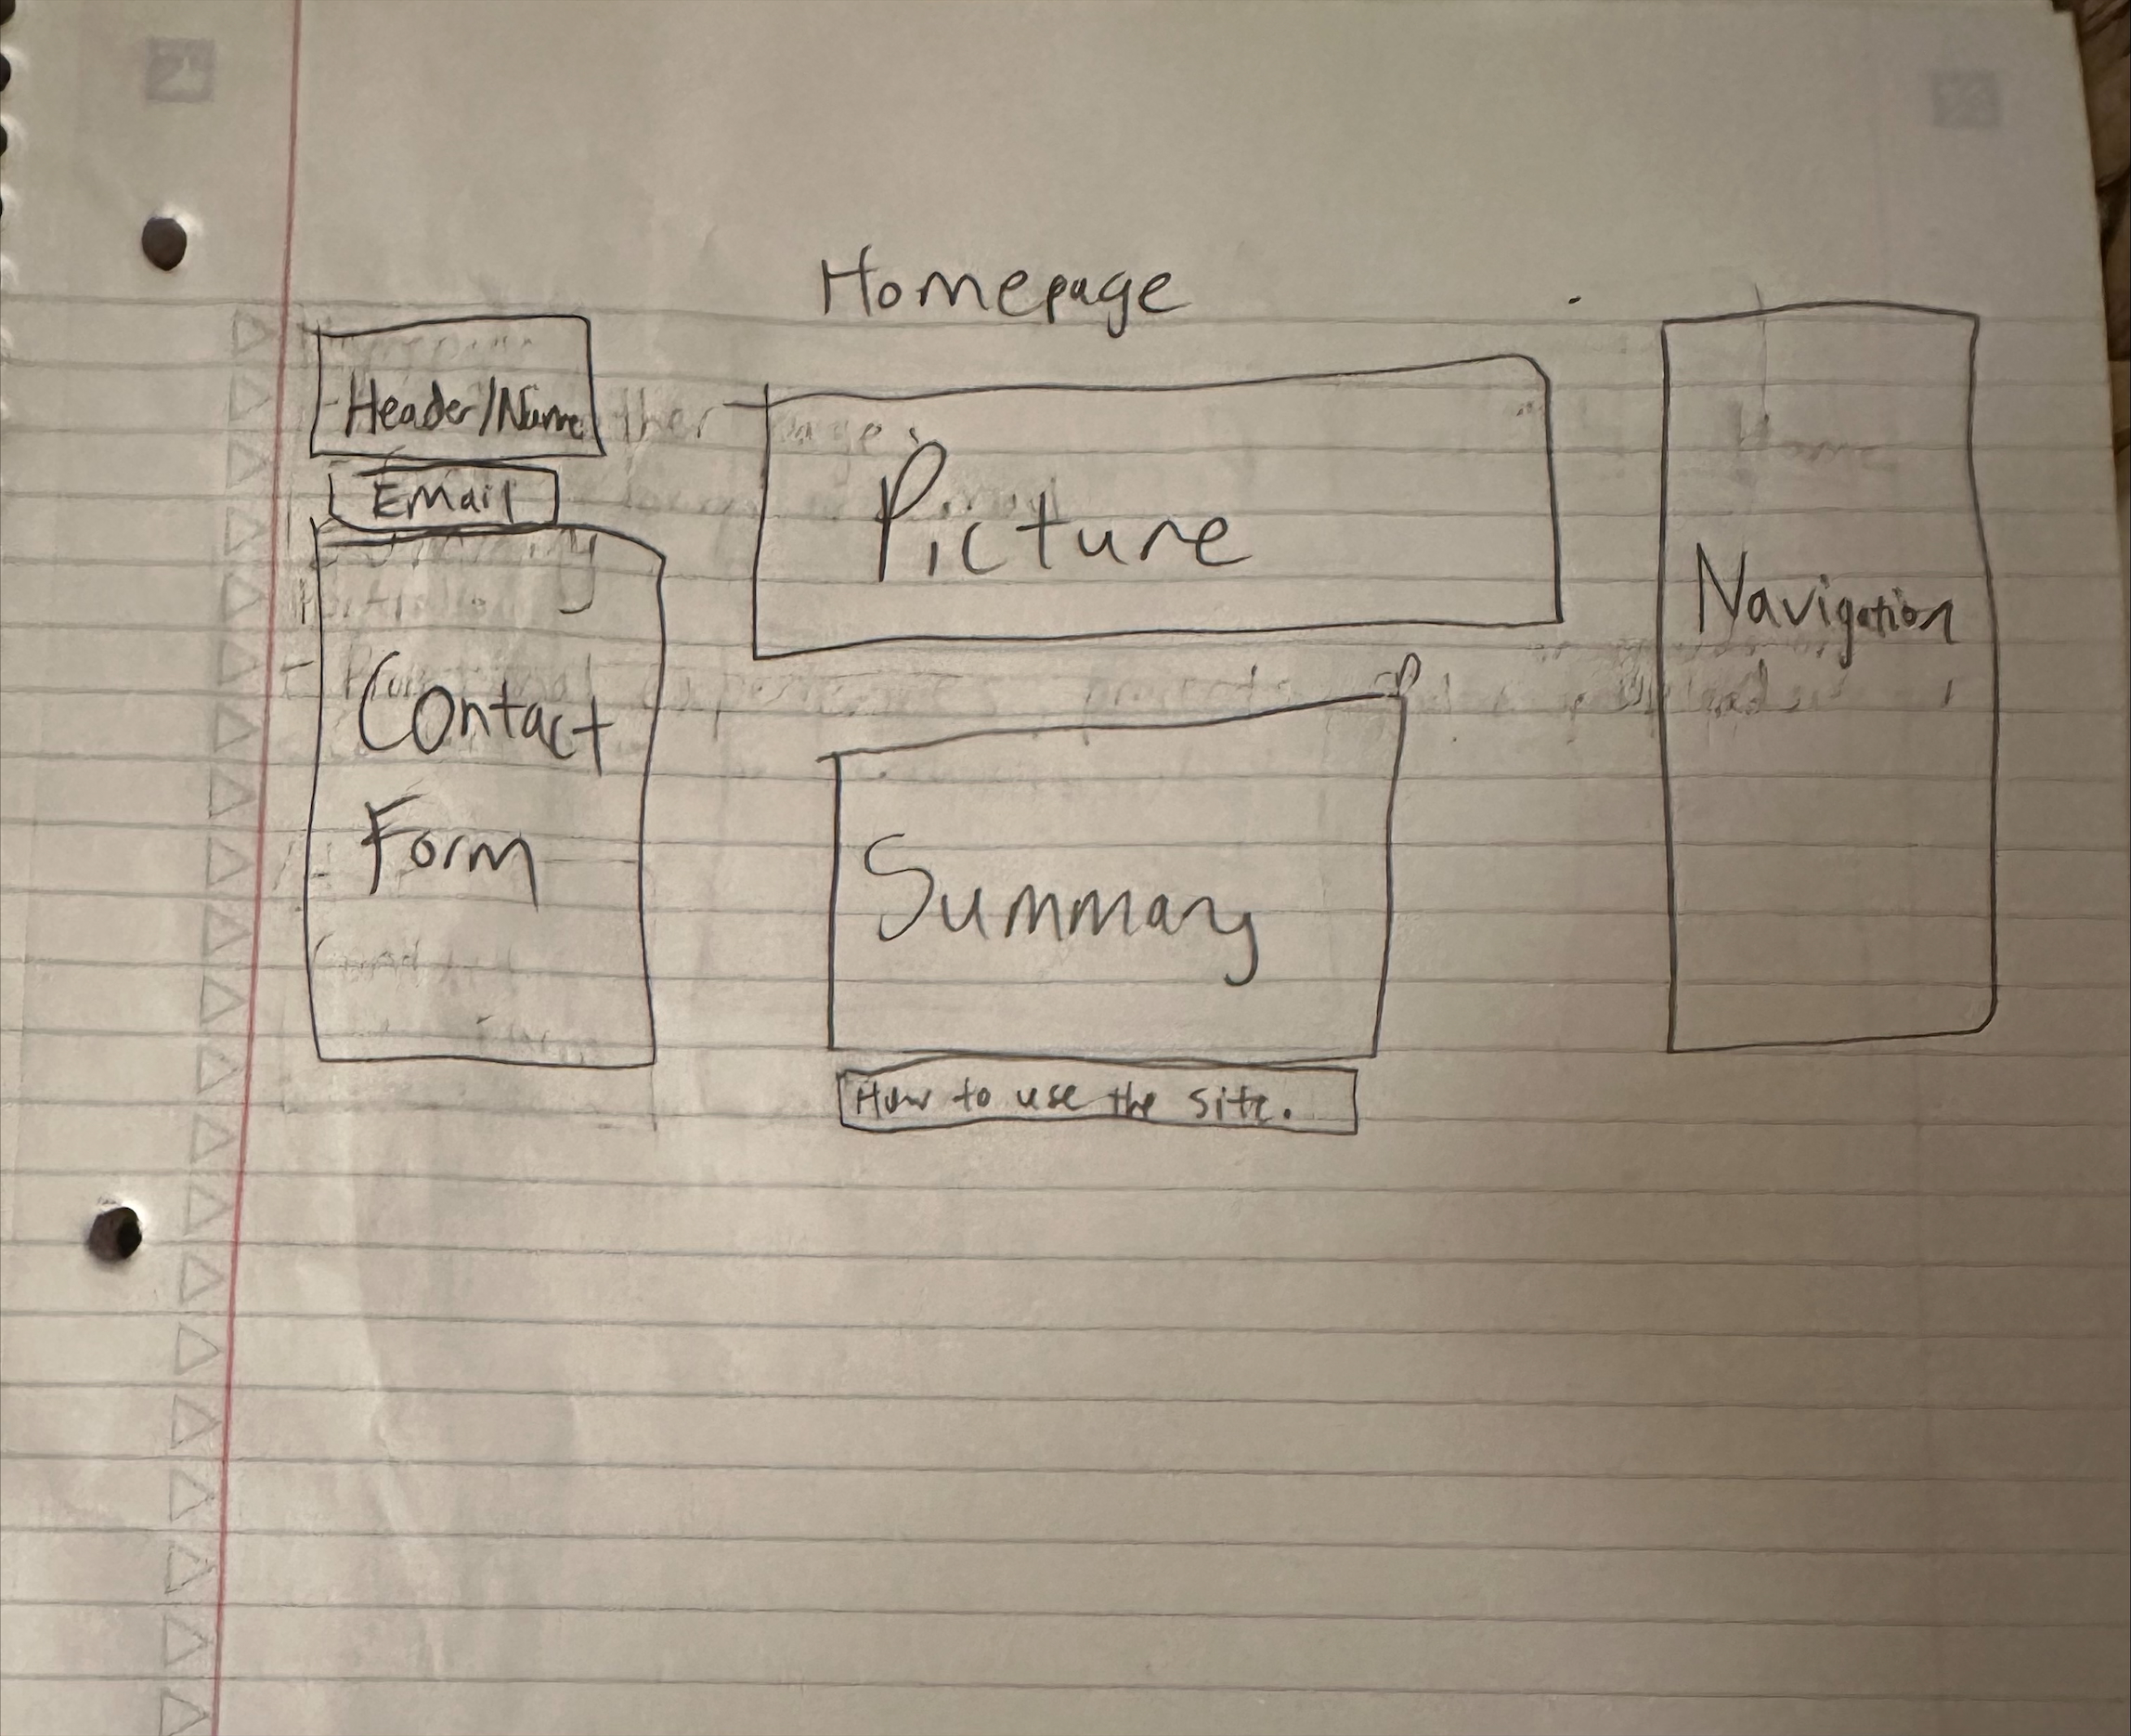 Homepage
Header/Name
Email
Contact
Form
Picture
Summary
How to use the site.
Navigation